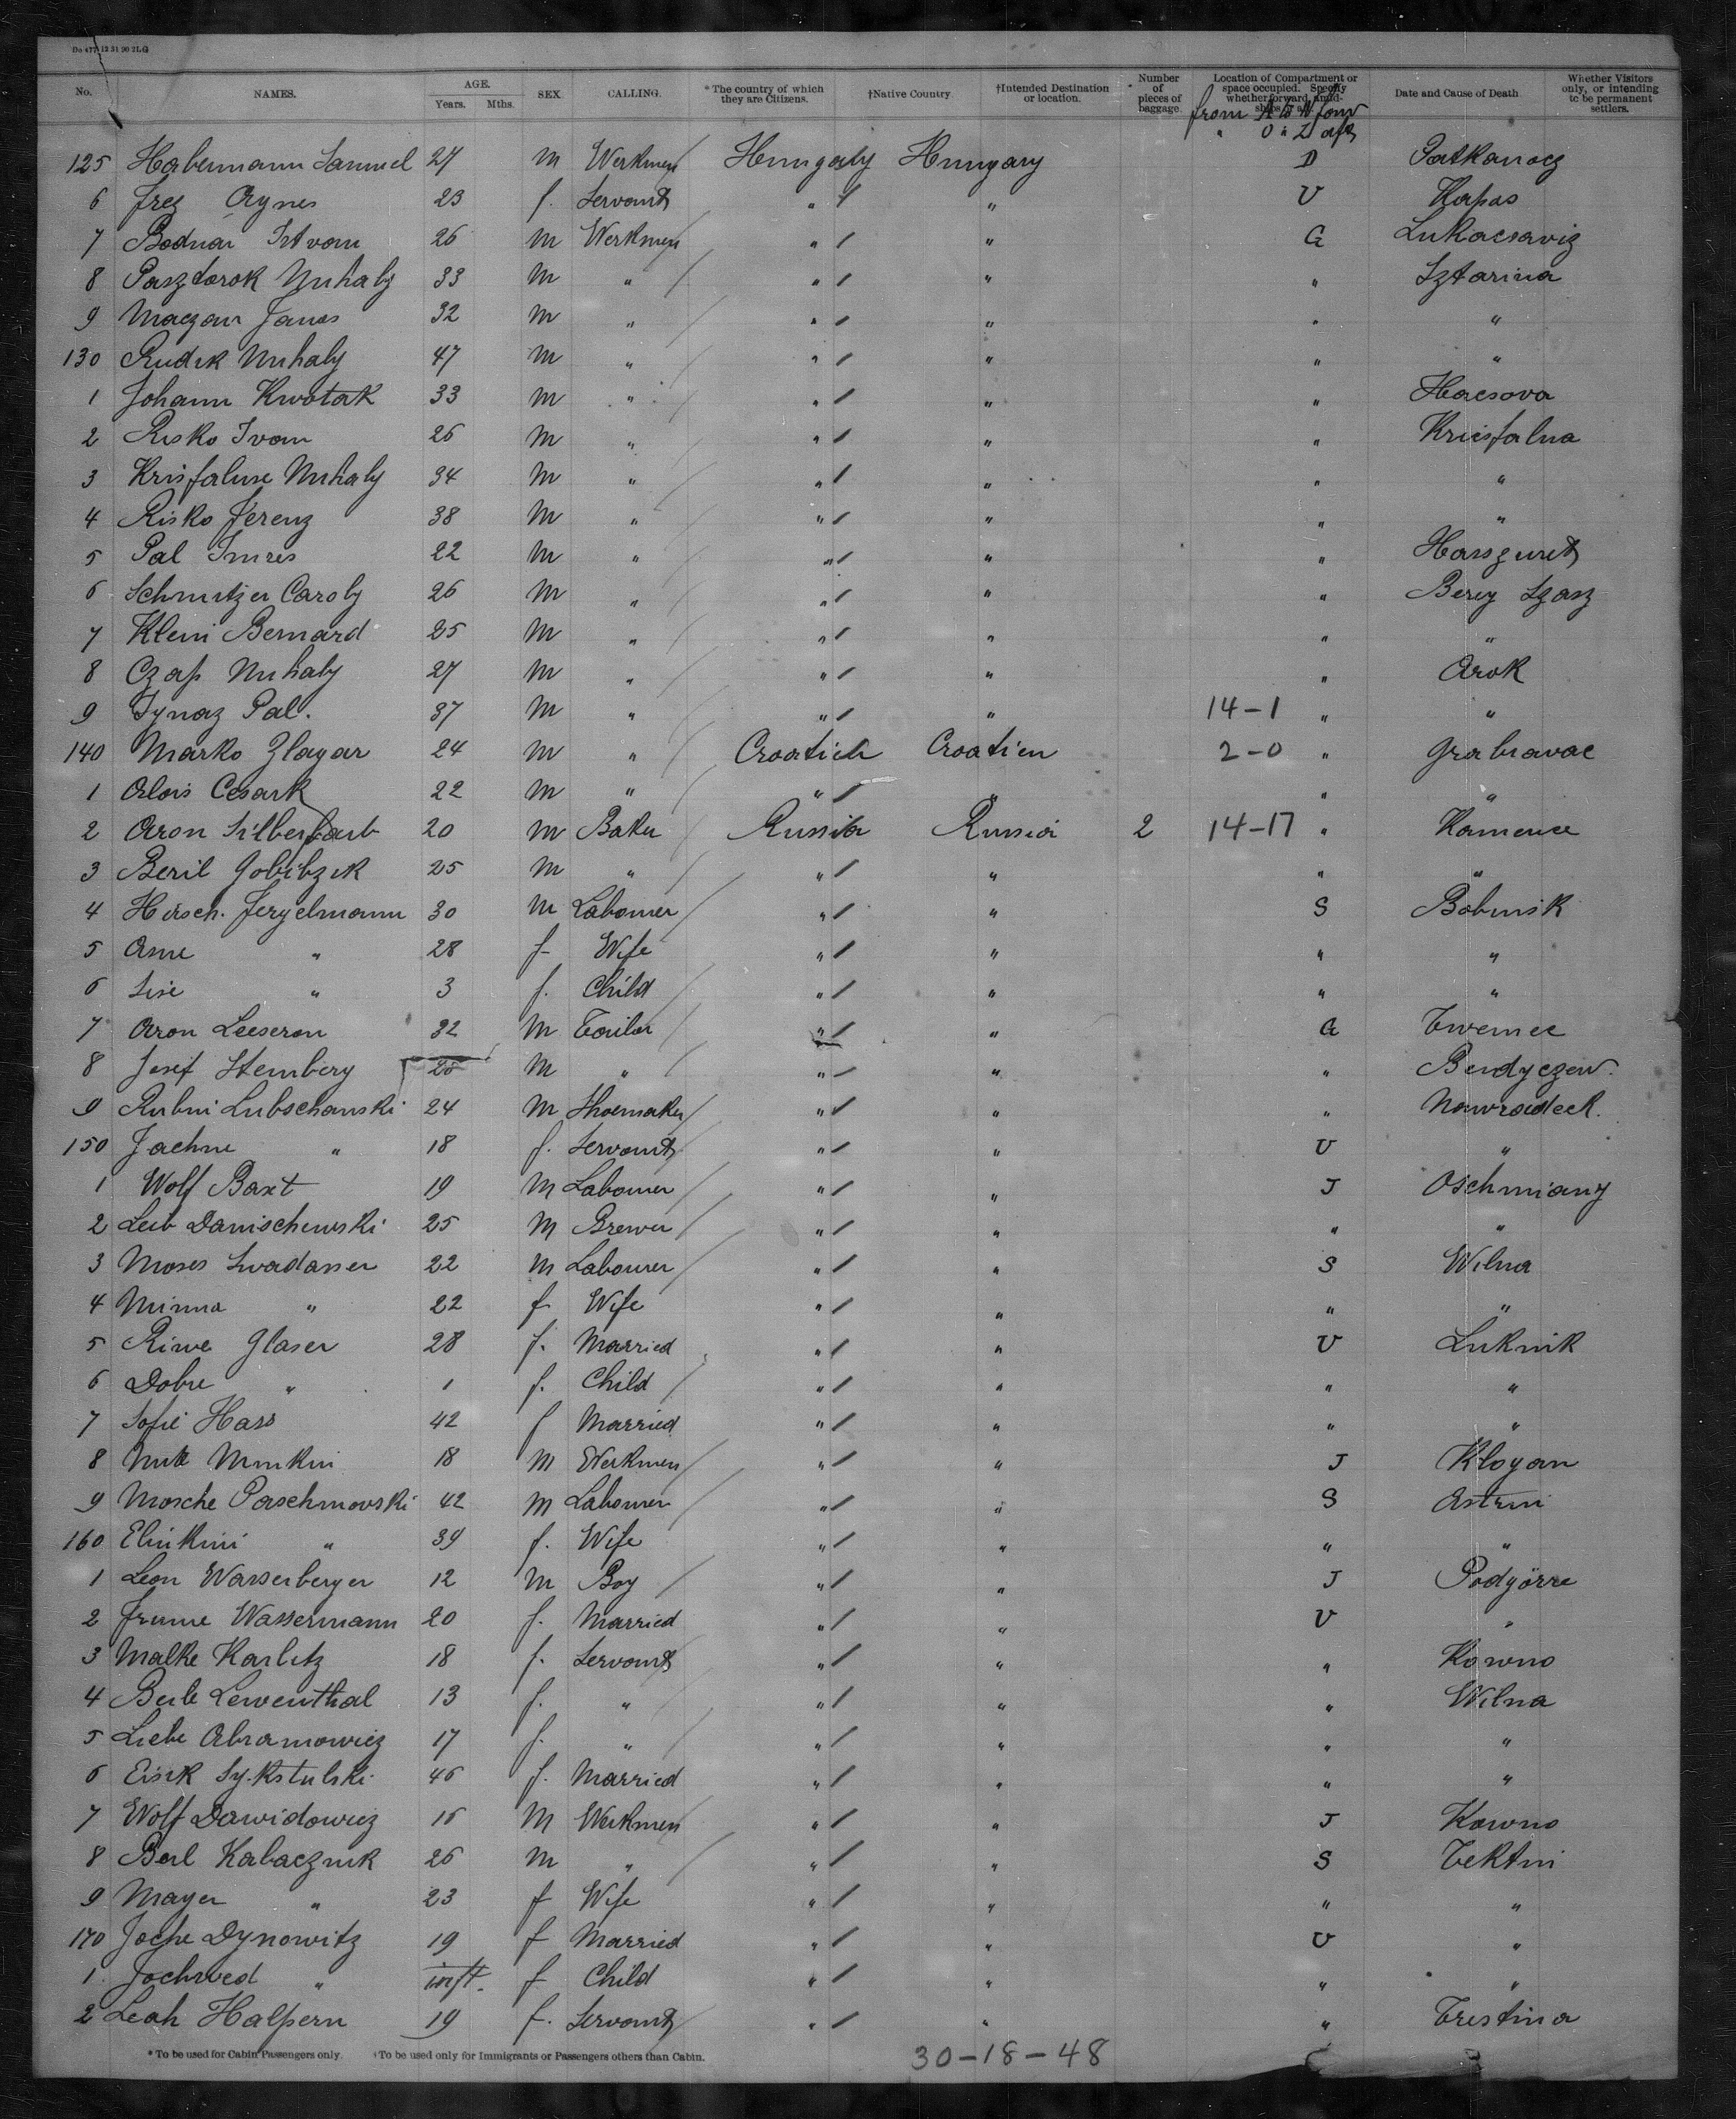 Do 477 12 31 90 2LG
No. NAMES. AGE. Years. Mths. SEX. CALLING. *The country of which they are Citizens. †Native Country †Intended Destination or location. Number of pieces of baggage Location of Compartment or space occupied. Specify whether forward, amidships or aft. Date and Cause of Death Whether Visitors only, or intending to be permanent settlers.
from A to N forw
" O " Z aft
125 Habermann Samuel 27 m Werkmen Hungary Hungary D Patkanocz
6 Frez Agnes 23 f. Servant " " U Kapas
7 Bodnar Istvan 26 m Werkmen " " G Lukacsaviz
8 Pasztorok Mihaly 33 m " " " " Sztarina
9 Maczan Janos 32 m " " " " "
130 Rudik Mihaly 47 m " " " " "
1 Johann Kwotak 33 m " " " " Hacsova
2 Risko Ivan 26 m " " " " Kriesfalua
3 Krisfaluse Mihaly 34 m " " " " "
4 Risko Ferenz 38 m " " " " "
5 Pal Imres 22 m " " " "
6 Schmitzer Caroly 26 m " " " " Bereg Szasz
7 Klein Bernard 25 m " " " " "
8 Czap Mihaly 27 m " " " " Arok
9 Ignaz Pal. 37 m " " " 14-1 " "
140 Marko Zlagar 24 m " Croatien Croatien 2-0 " Grabravac
1 Alois Cesark 22 m " " " " "
2 Aron Silberfarb 20 m Baker Russia Russia 2 14-17 " Kamence
3 Beril Gobibzik 25 m " " " " "
4 Hirsch. Fergelmann 30 m Labourer " " S Bobinsk
5 Asne " 28 f- Wife " " " "
6 Lise " 3 f. Child " " " "
7 Aron Leeseron 32 m Tailor " " G Twemec
8 Josef Sternberg 25 m " " " " Berdyczew.
9 Rubin Lubschanski 24 m Shoemaker " " " Nowradeck.
150 Jachne " 18 f. Servant " " U "
1 Wolf Baxt 19 m Labourer " " J Oschmiany
2 Leib Danischewski 25 m Brewer " " " "
3 Moses Swadasser 22 m Labourer " " S Wilna
4 Minna " 22 f Wife " " " "
5 Riwe Glaser 28 f. Married " " U Luknik
6 Dobre " 1 f. Child " " " "
7 Sofie Hass 42 f Married " " " "
8 Minkin 18 m Werkmen " " J Kloyan
9 Mosche Paschmowski 42 m Labourer " " S Astrin
160 Elinkini " 39 f. Wife " " " "
1 Leon Wasserberger 12 m Boy " " J Podgörre
2 Frume Wassermann 20 f. Married " " U "
3 Malke Karlitz 18 f. Servant " " " Kowno
4 Beile Lewenthal 13 f. " " " " Wilna
5 Liebe Abramowicz 17 f. " " " " "
6 Eisik Sykstulski 46 f. Married " " " "
7 Wolf Dawidowicz 16 m Werkmen " " J Kowno
8 Berl Kabacznik 26 m " " " S Tektini
9 Mayer " 23 f Wife " " " "
170 Joche Dynowitz 19 f Married " " U "
1. Jochwed " inft. f Child " " " "
2 Leah Halpern 19 f. Servant " " " Trestina
*To be used for Cabin Passengers only. †To be used only for Immigrants or Passengers others than Cabin.
30-18-48